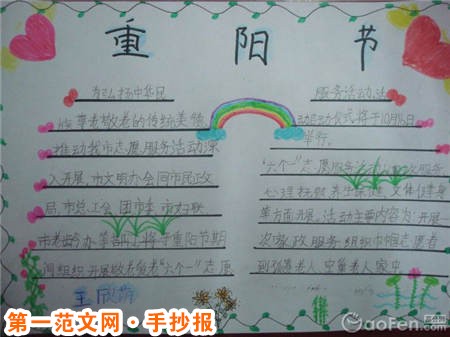 重阳节
为弘扬中华民
族尊老敬老的传统美德
推动我市志愿服务活动深
入开展.市文明办会同市民政
局.市总工会 团市委.市妇联
市老龄办等部门将于重阳节期
间组织开展敬老爱老"六个一"志愿
服务活动.活
动启动仪式将于10月15日
举行。
"六个一"志愿服务活
心理抚慰.养生保健.文体健身
等方面开展.活动主要内容为:开展一
次家政服务.组织巾帼志愿者
到孤寡老人空巢老人家
第一范文网·手抄报
aoFen.com